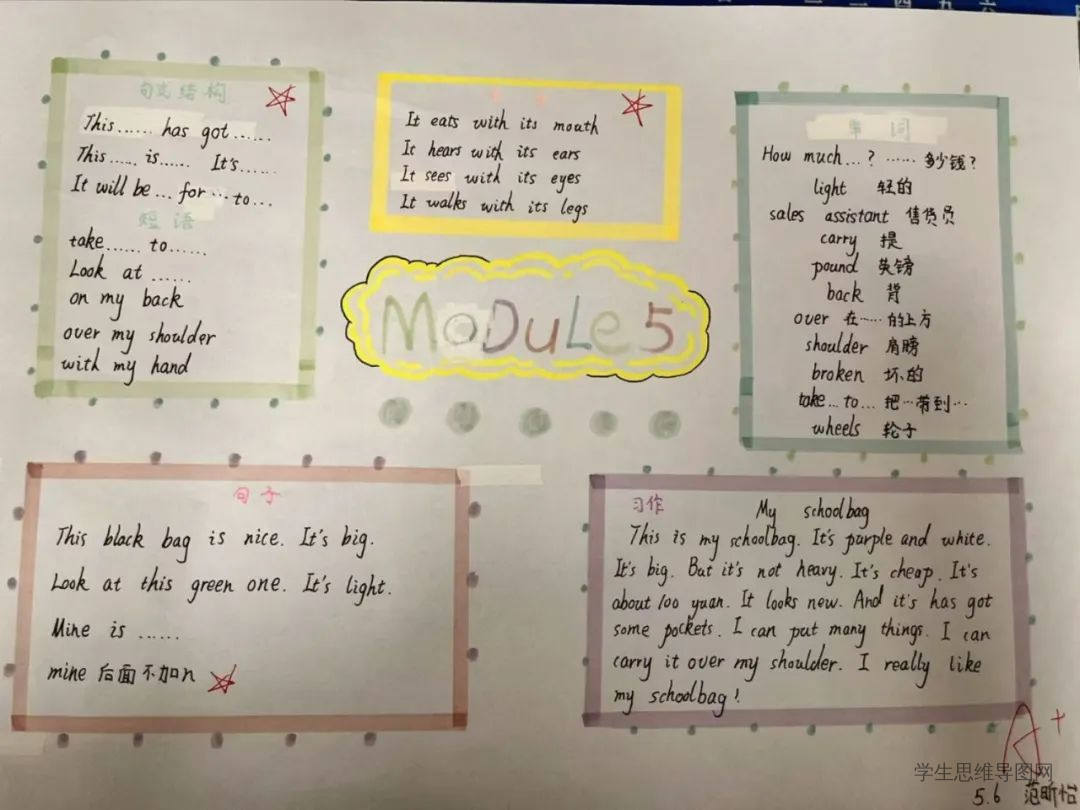 句式结构
This…… has got……
This…… is…… It's……
It will be … for … to…
短语
take…… to……
Look at ……
on my back
over my shoulder
with my hand
It eats with its mouth
It hears with its ears
It sees with its eyes
It walks with its legs
单词
How much…? ……多少钱?
light 轻的
sales assistant 售货员
carry 提
pound 英镑
back 背
over 在……的上方
shoulder 肩膀
broken 坏的
take…to… 把…带到…
wheels 轮子
MoDuLe 5
句子
This black bag is nice. It's big.
Look at this green one. It's light.
Mine is ……
mine 后面不加n
习作 My schoolbag
This is my schoolbag. It's purple and white.
It's big. But it's not heavy. It's cheap. It's
about 100 yuan. It looks new. And it's has got
some pockets. I can put many things. I can
carry it over my shoulder. I really like
my schoolbag!
A+
学生思维导图网
5.6 范昕怡